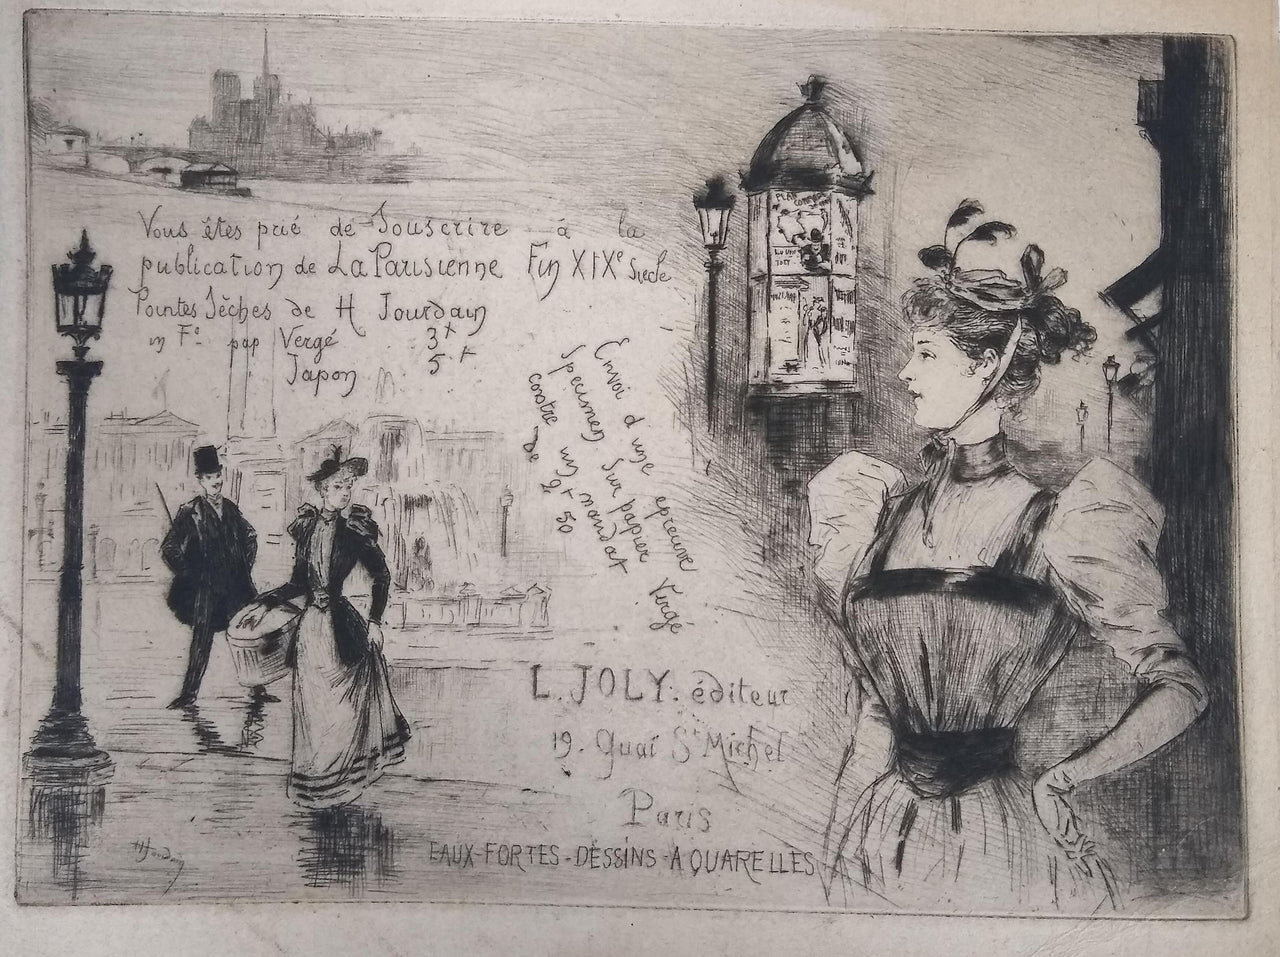 Vous êtes prié de Souscrire à la
publication de La Parisienne Fin XIXe Siecle
Pointes Sêches de H Jourdain
in Fo. pap Vergé 3f
Japon 5f
Envoi d'une épreuve
Specimen Sur papier Vergé
contre un mandat
de 2f 50
L. JOLY. éditeur
19. Quai St Michel
Paris
EAUX-FORTES-DESSINS-AQUARELLES
H Jourdain